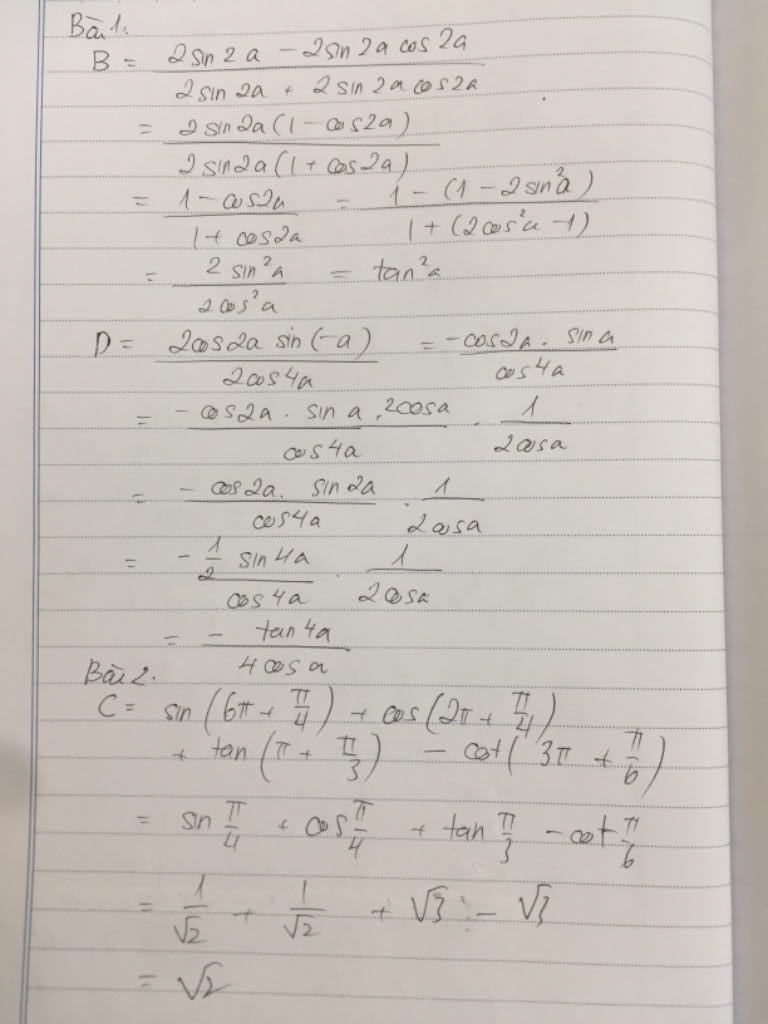 Bài 1:
B = (2sin2a - 2sin2a cos2a) / (2sin2a + 2sin2a cos2a)
= 2sin2a(1 - cos2a) / 2sin2a(1 + cos2a)
= (1 - cos2a) / (1 + cos2a) = (1 - (1 - 2sin²a)) / (1 + (2cos²a - 1))
= 2sin²a / 2cos²a = tan²a
D = 2cos2a sin(-a) / 2cos4a = -cos2a . sina / cos4a
= -cos2a . sina . 2cosa / cos4a . 1 / 2cosa
= -cos2a . sin2a / cos4a . 1 / 2cosa
= -1/2 sin4a / cos4a . 1 / 2cosa
= - tan4a / 4cosa
Bài 2.
C = sin(6π + π/4) + cos(2π + π/4)
+ tan(π + π/3) - cot(3π + π/6)
= sin π/4 + cos π/4 + tan π/3 - cot π/6
= 1/√2 + 1/√2 + √3 - √3
= √2